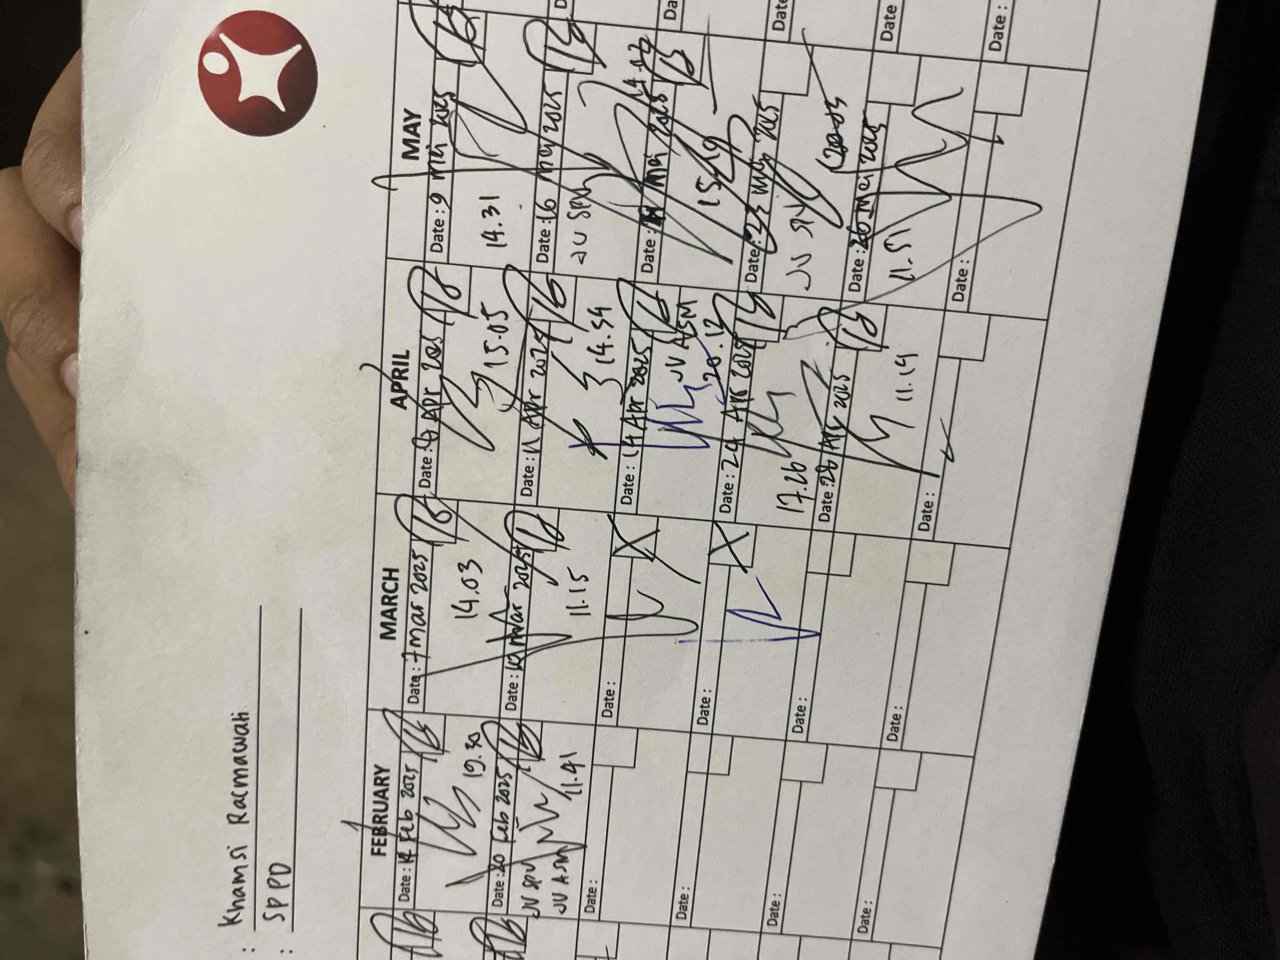 : Khamsi Ratmawati
: SPPD
FEBRUARY
MARCH
APRIL
MAY
Date : 12 Feb 2025
19.30
Date : 7 Mar 2025
14.03
Date : Apr 2025
15.05
Date : 9 Mei 2025
14.31
Date : 20 Feb 2025
JV SPV
JV ASM
11.41
Date : Mar 2025
11.15
Date : 11 Apr 2025
14.54
Date : 16 Mei 2025
JV SPV
Date :
Date :
Date : 14 Apr 2025
JV ASM
20.12
Date : Mei 2025
14.03
Date :
Date :
Date : 24 Apr 2025
17.26
Date : 2025
JV SPV
Date :
Date :
Date : 28 Apr 2025
11.19
Date : 26 Mei 2025
11.51
Date :
Date :
Date :
Date :
Date :
Date :
Date :
Date :